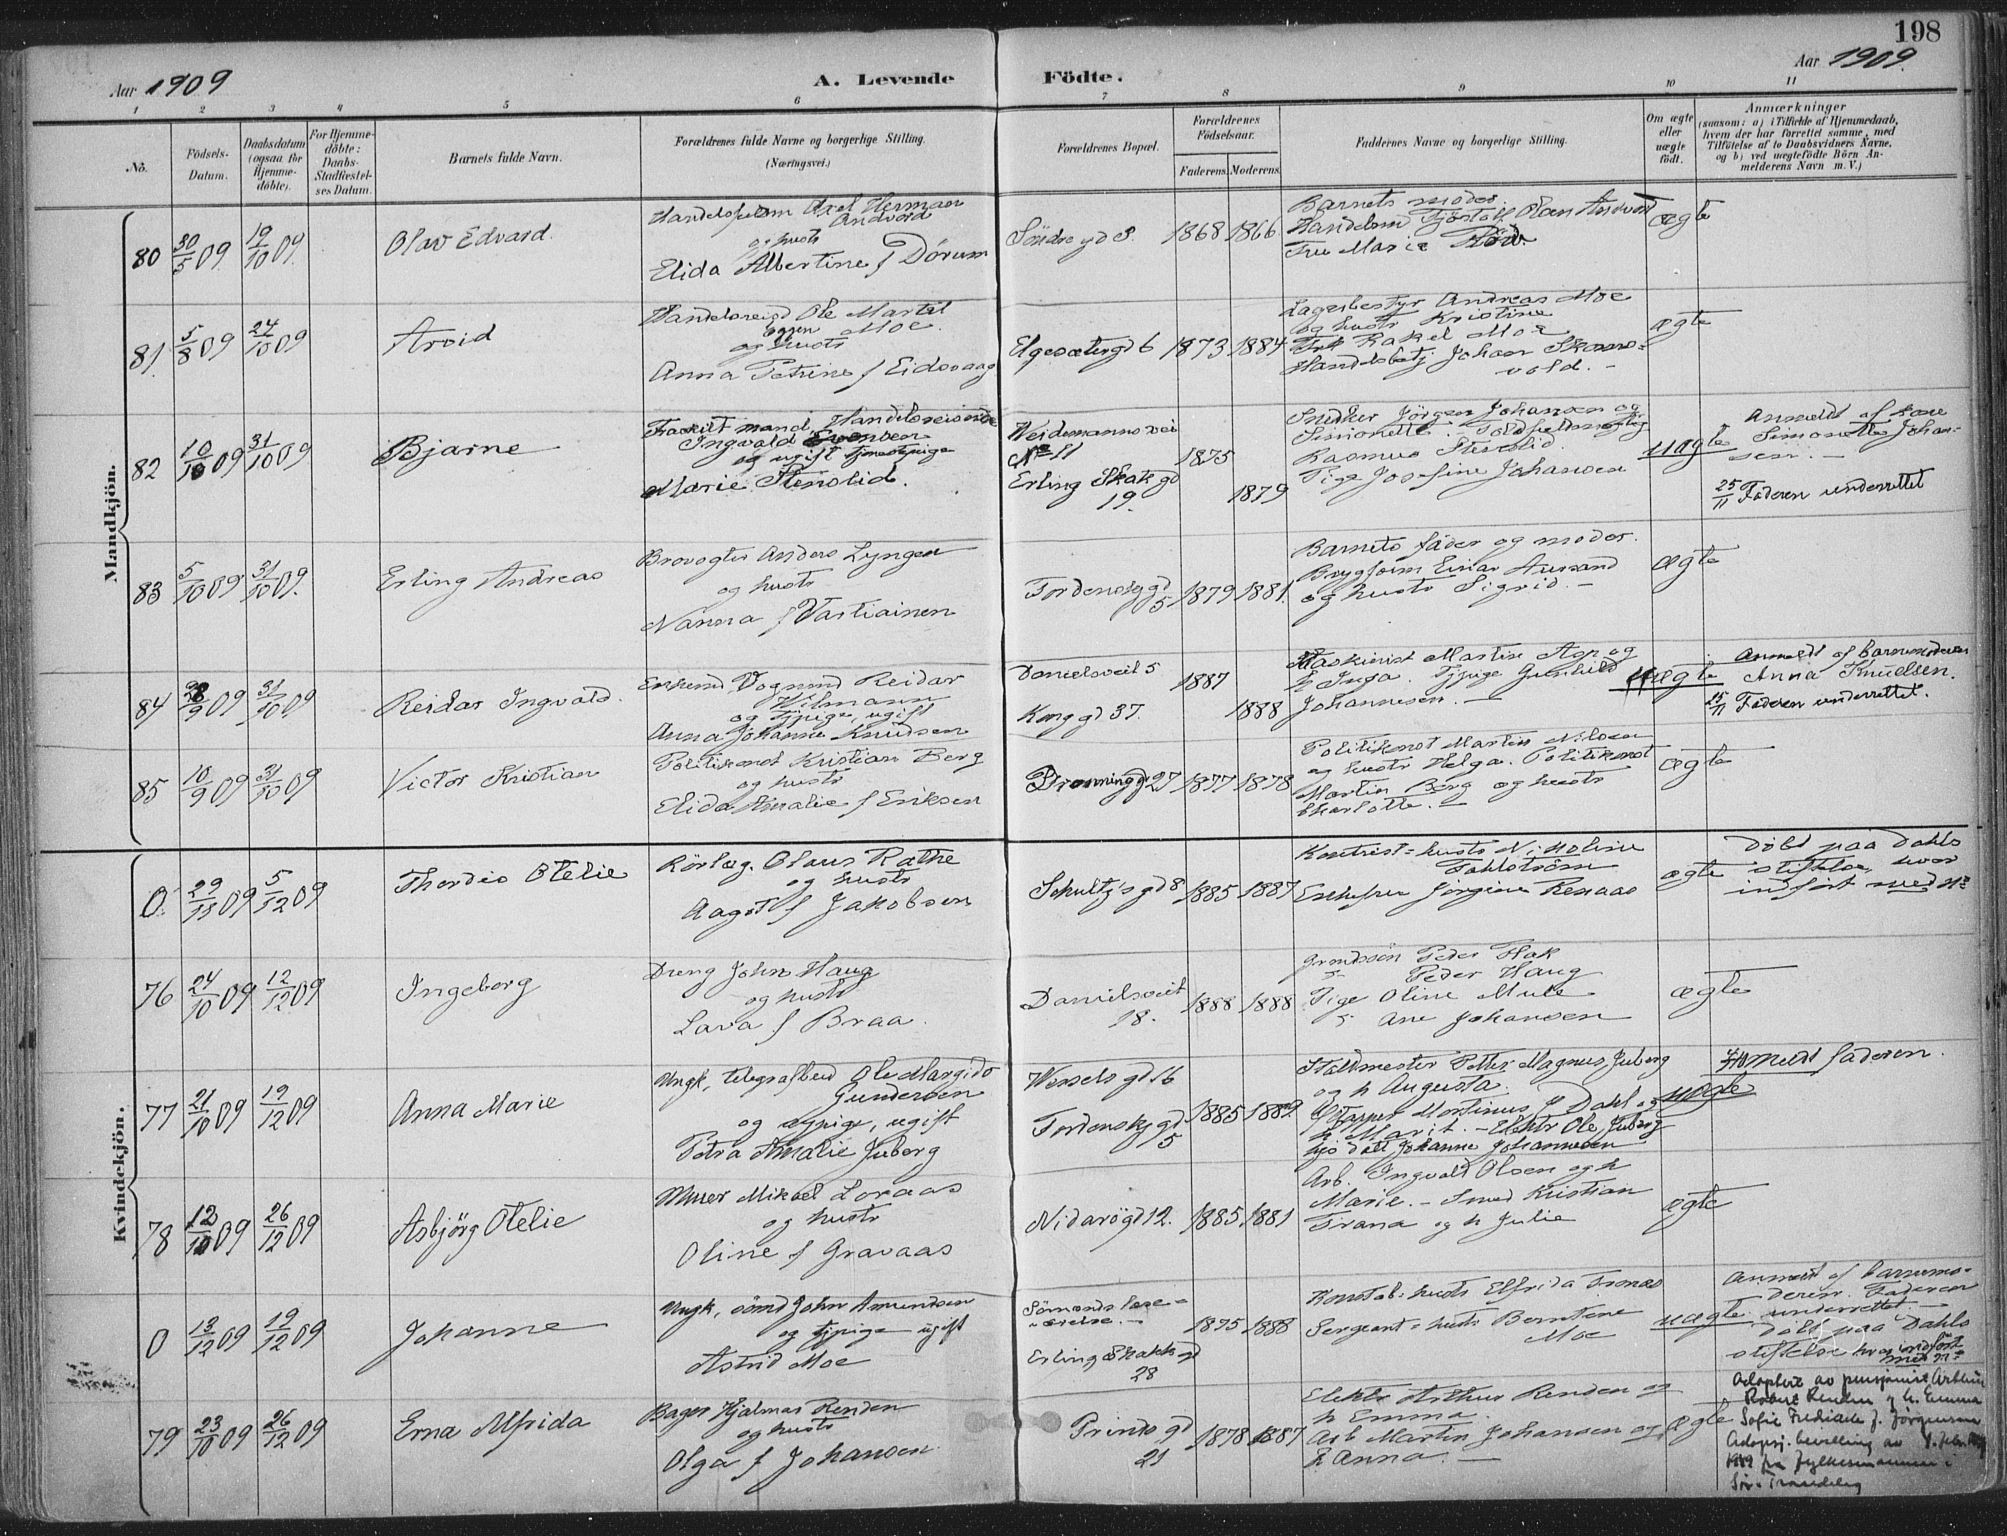 198
Aar 1909
A. Levende
Födte.
Aar 1909.
1 2 3 4 5 6 7 8 9 10 11
No.
Födsels-
Datum.
Daabsdatum
(ogsaa for
Hjemme-
döbte).
For Hjemme-
döbte:
Daabs-
Stadfæstel-
ses Datum.
Barnets fulde Navn.
Forældrenes fulde Navne og borgerlige Stilling.
(Næringsvei.)
Forældrenes Bopæl.
Forældrenes
Födselsaar.
Faderens. Moderens.
Faddernes Navne og borgerlige Stilling.
Om ægte
eller
uægte
födt.
Anmærkninger
(saasom: a) i Tilfælde af Hjemmedaab,
hvem der har forrettet samme, med
Tilföielse af to Daabsvidners Navne,
og b) ved uægtefödte Börn An-
melderens Navn m. V.)
Mandkjön.
80 30/5 09 19/10 09
Olav Edvard.
Axel Herman
Andvord
og hustr
Elida Albertine f Dörum
Söndre gd 8. 1868 1866
Barnets moder.
Handelsm Olsen Andvord
Fru Marie
ægte
81. 5/8 09 24/10 09
Arvid
Handelsreisd Ole Martel
Moe.
og hustr
Anna Petrine f Eidsvaag
Elgesætergd 6 1873 1884
Lagerbestyr Andreas Moe
og hustr Kristine
Frk Rakel Moe
Handelsbetj Johan Skams-
vold.
ægte
82 10/10 09 31/10 09
Bjarne
Fraskilt mand, Handelsreisende
Ingvald Evensen
og ugift tjenestepige
Marie Stenslid.
Weidemannsvei
No 11
Erling Skak gd
19.
1875
1879
Snedker Jörgen Johansen og
Simonette.
Rasmus Stenslid.
Pige Josefine Johansen
uægte
Anmeldt af kone
Simonette Johan-
sen.
25/11 Faderen underrettet
83 5/10 09 31/10 09.
Erling Andreas
Brovogter Anders Lyngen
og hustr
Nanna f Vastiainen
Tordenskj gd
5 1879 1881.
Barnets fader og moder.
Einar Aursand
og hustr Sigrid.
ægte
84 28/9 09 31/10 09
Reidar Ingvald.
Reidar
Wilmann
og tjpige, ugift
Anna Johanne Knudsen
Danielsveit 5
Kong gd 37.
1887
1888
Maskinist Martin Aga og
h Inga. Tjpige Gunhild
Johannesen.
uægte
Anmeldt af barnemoderen
Anna Knudsen.
15/11 Faderen underrettet.
85 10/9 09 31/10 09
Victor Kristian
Politikonst Kristian Berg
og hustr
Elida Amalie f Eriksen
Dronning gd 27 1877 1878
Politikonst Martin Nilsen
og hustr Helga. Politikonst
Martin Berg og hustr
Charlotte.
ægte
Kvindekjön.
0. 29/11 09 5/12 09
Thordis Otelie
Rörlæg. Olaus Rathe
og hustr
Aagot f Jakobsen
Schultz's gd 8 1885 1887
hustr Nikoline
Fahlström
Enkefru Jörgine Renaas
ægte
Döbt paa Dahls
stiftelse, hvor
indfört med No
76 24/10 09 12/12 09
Ingeborg
Dreng John Haug
og hustr
Lava f Braa.
Danielsveit
18. 1888 1888
Peder Flak
Peder Haug
Pige Oline Mule
Ane Johansen
ægte
77 21/10 09 19/12 09
Anna Marie
Ungk, telegrafbud Ole Margido
Gundersen
og tjpige, ugift
Petra Amalie Juberg
Wessels gd 16
Tordenskj gd
5 1885 1889.
Staldmester Petter Magnus Juberg
og h Augusta.
Martinus P Dahl og
h Marit. - Elektr Ole Juberg
Johanne Johannesen
uægte
Anmeldt faderen.
78 12/10 09 26/12 09
Asbjörg Otelie
Murer Mikael Loraas
og hustr
Oline f Gravaas
Nidarö gd 12. 1885 1881
Arb. Ingvald Olsen og h
Marie. - Smed Kristian
Trana og h Julie
ægte
0 13/12 09 19/12 09
Johanne
Ungk, sömd John Amundsen
og tjpige ugift
Astrid Moe
Sömands læse-
værelse.
Erling Skakks gd
28
1875 1888
Konstab. hustr Elfrida Tronas
Sergeant hustr Berntine
Moe
uægte
Anmeldt af barnemo-
deren. Faderen
underrettet.
Döbt paa Dahls
stiftelse hvor indfört
med No
79 23/10 09 26/12 09
Erna Alfrida
Bager Hjalmar Renden
og hustr
Olga f Johansen
Prinds gd
21 1878 1887
Elektr Arthur Renden og
h Emma.
Arb Martin Johansen og
h Anna.
ægte
Adoptert av pensjonist Arthur
Robert Renden og h. Emma
Sofie f. Jørgensen
Adopsj. bevilling av
fra fylkesmannen i
Sør-Trøndelag